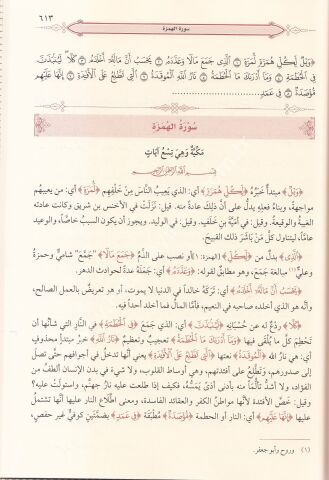 ٦١٣
سورة الهمزة
﴿وَيْلٌ لِّكُلِّ هُمَزَةٍ لُّمَزَةٍ ۝ ٱلَّذِى جَمَعَ مَالًا وَعَدَّدَهُۥ ۝ يَحْسَبُ أَنَّ مَالَهُۥٓ أَخْلَدَهُۥ ۝ كَلَّا ۖ لَيُنۢبَذَنَّ
فِى ٱلْحُطَمَةِ ۝ وَمَآ أَدْرَىٰكَ مَا ٱلْحُطَمَةُ ۝ نَارُ ٱللَّهِ ٱلْمُوقَدَةُ ۝ ٱلَّتِى تَطَّلِعُ عَلَى ٱلْأَفْـِٔدَةِ ۝ إِنَّهَا عَلَيْهِم
مُّؤْصَدَةٌ ۝ فِى عَمَدٍ
سُورَةُ الهُمَزَة
مكيّة وهي تسع آيات
بسم الله الرحمن الرحيم
﴿وَيْلٌ﴾ مبتدأ خبرُه ﴿لِكُلِّ هُمَزَةٍ﴾ أي: الذي يعيبُ الناسَ مِن خَلْفِهم ﴿لُمَزَةٍ﴾ أي: من يعيبهم
مواجهةً، وبناءُ فُعَلة يدلّ على أنّ ذلك عادة منه. قيل: نزلت في الأخنس بن شريق وكانت عادته
الغيبة والوقيعة. وقيل: في أميّة بن خلف. وقيل: في الوليد. ويجوز أن يكون السبب خاصًّا، والوعيد
عامًّا، ليتناول كلّ مَن باشَرَ ذلك القبيح.
﴿الَّذِى﴾ بدلٌ من ﴿كُلِّ﴾ [الهمزة: ١] أو نصب على الذمّ ﴿جَمَعَ مَالًا﴾ "جَمَّعَ" شاميّ وحمزة
وعليّ(١) مبالغة جَمَعَ، وهو مطابق لقوله: ﴿وَعَدَّدَهُ﴾ أي: جَعَلَهُ عدة لحوادث الدهر.
﴿يَحْسَبُ أَنَّ مَالَهُ أَخْلَدَهُ﴾ أي: تركَهُ خالدًا في الدنيا لا يموت، أو هو تعريضٌ بالعمل الصالح،
وأنّه هو الذي أخلدَ صاحبه في النعيم، فأمّا المال فما أخلدَ أحدًا فيه.
﴿كَلَّا﴾ ردعٌ له عن حُسْبَانِه ﴿لَيُنْبَذَنَّ﴾ أي: الذي جَمَعَ ﴿فِى الْحُطَمَةِ﴾ في النّار التي شأنُها أن
تَحْطِمَ كلّ ما يُلقى فيها ﴿وَمَا أَدْرَاكَ مَا الْحُطَمَةُ﴾ تعجيبٌ وتعظيم ﴿نَارُ اللَّهِ﴾ خبرُ مبتدأ محذوف
أي: هي نارُ الله ﴿الْمُوقَدَةُ﴾ نعتُها ﴿الَّتِى تَطَّلِعُ عَلَى الْأَفْئِدَةِ﴾ يعني أنّها تدخل في أجوافهم حتّى تصل
إلى صدورهم، وتطّلع على أفئدتهم، وهي أوساط القلوب، ولا شيء في بدن الإنسان ألطفُ من
الفؤاد، ولا أشدّ تألُّمًا منه بأدنى أذًى يَمَسُّه، فكيف إذا طلعت عليه نارُ جهنّم، واستولت عليه؟
وقيل: خصّ الأفئدة لأنّها مواطنُ الكفر والعقائد الفاسدة، ومعنى اطّلاع النار عليها أنّها تشتملُ
عليها ﴿إِنَّهَا عَلَيْهِم﴾ أي: النار أو الحطمة ﴿مُؤْصَدَةٌ﴾ مطبَقَة ﴿فِى عَمَدٍ﴾ بضمّتين كوفيّ غير حفص،
(١) وروح وأبو جعفر.